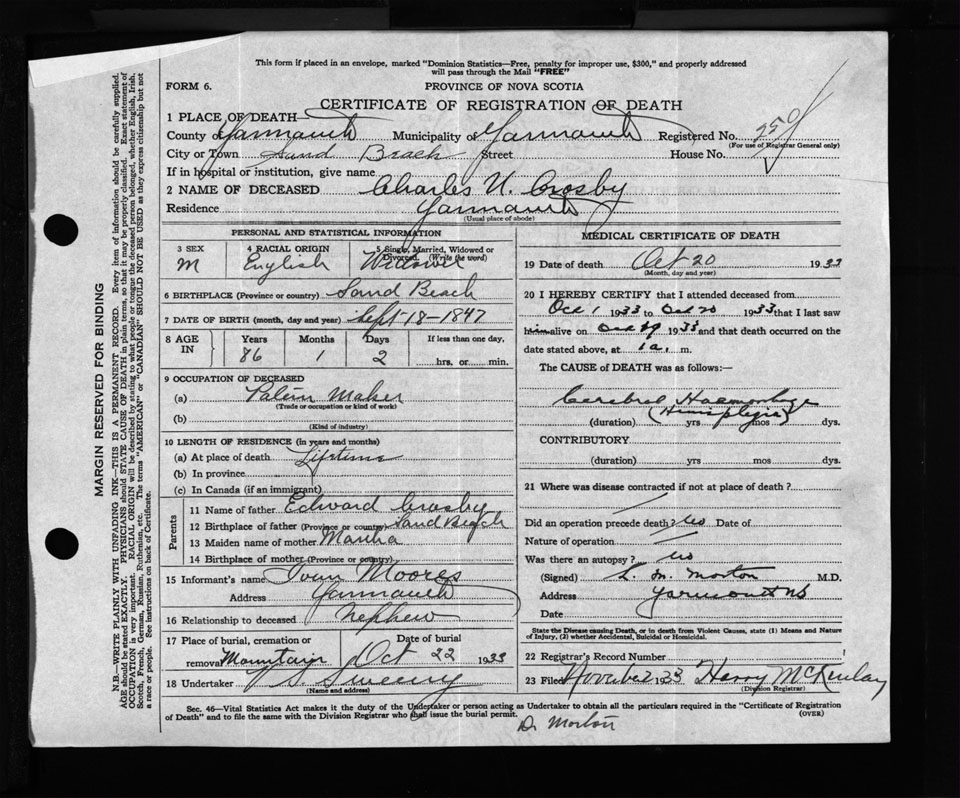 This form if placed in an envelope, marked "Dominion Statistics—Free, penalty for improper use, $300," and properly addressed
will pass through the Mail "FREE"
FORM 6.
PROVINCE OF NOVA SCOTIA
CERTIFICATE OF REGISTRATION OF DEATH
1 PLACE OF DEATH
County of Yarmouth Municipality of Yarmouth Registered No. 250
(For use of Registrar General only)
City or Town Sand Beach Street House No.
If in hospital or institution, give name
2 NAME OF DECEASED Charles N. Crosby
Residence Yarmouth
(Usual place of abode)
PERSONAL AND STATISTICAL INFORMATION
3 SEX 4 RACIAL ORIGIN 5 Single, Married, Widowed or Divorced. (Write the word)
M English Widower
6 BIRTHPLACE (Province or country) Sand Beach
7 DATE OF BIRTH (month, day and year) Sept-18-1847
8 AGE IN Years Months Days If less than one day,
86 1 2 hrs. or min.
9 OCCUPATION OF DECEASED
(a) Maker
(Trade or occupation or kind of work)
(b)
(Kind of industry)
10 LENGTH OF RESIDENCE (in years and months)
(a) At place of death Lifetime
(b) In province
(c) In Canada (if an immigrant)
Parents
11 Name of father Edward Crosby
12 Birthplace of father (Province or country) Sand Beach
13 Maiden name of mother Martha
14 Birthplace of mother (Province or country)
15 Informant's name Moores
Address Yarmouth
16 Relationship to deceased Nephew
17 Place of burial, cremation or removal Mountain Date of burial Oct 22 1933
18 Undertaker V S Sweeny
(Name and address)
MEDICAL CERTIFICATE OF DEATH
19 Date of death Oct 20 1933
(Month, day and year)
20 I HEREBY CERTIFY that I attended deceased from
Oct 1 1933 to Oct 20 1933 that I last saw
him alive on Oct 19 1933 and that death occurred on the
date stated above, at 1 a. m.
The CAUSE of DEATH was as follows:—
Cerebral Haemorhage
(Hemiplegia)
(duration) yrs mos dys.
CONTRIBUTORY
(duration) yrs mos dys.
21 Where was disease contracted if not at place of death?
Did an operation precede death? No Date of
Nature of operation
Was there an autopsy? no
(Signed) L. M. Morton M.D.
Address Yarmouth NS
Date
State the Disease causing Death, or to death from Violent Causes, state (1) Means and Nature
of Injury, (2) whether Accidental, Suicidal or Homicidal.
22 Registrar's Record Number
23 Filed November 1933 Harry McKinlay
(Division Registrar)
Sec. 46—Vital Statistics Act makes it the duty of the Undertaker or person acting as Undertaker to obtain all the particulars required in the "Certificate of Registration
of Death" and to file the same with the Division Registrar who shall issue the burial permit.
(OVER)
Dr Morton
MARGIN RESERVED FOR BINDING
N.B.—WRITE PLAINLY WITH UNFADING INK—THIS IS A PERMANENT RECORD. Every item of information should be carefully supplied.
AGE should be stated EXACTLY. PHYSICIANS should STATE CAUSE OF DEATH in plain terms, so that it may be properly classified. Exact statement of
OCCUPATION is very important. RACIAL ORIGIN will be described by stating to what people or tongue the deceased person belonged, whether English, Irish,
Scotch, French, German, Russian, Ruthenian, etc. The terms "AMERICAN" or "CANADIAN" SHOULD NOT BE USED as they express citizenship but not
a race or people. See instructions on back of Certificate.